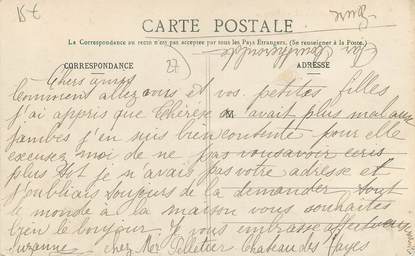 15€
CARTE POSTALE
La Correspondance au recto n'est pas acceptée par tous les Pays Etrangers. (Se renseigner à la Poste.)
CORRESPONDANCE
27)
ADRESSE
Chers amis
Comment allez vous et vos petites filles
j'ai appris que Thérèse avait plus mal aux
jambes j'en suis bien contente pour elle
excusez moi de ne pas vous avoir ecris
plus tot je n'avais pas votre adresse et
j'oubliais toujours de la demander tout
le monde à la maison vous souhaites
bien le bonjour. Je vous embrasse
Suzanne chez Mr Pelletier Chateau des